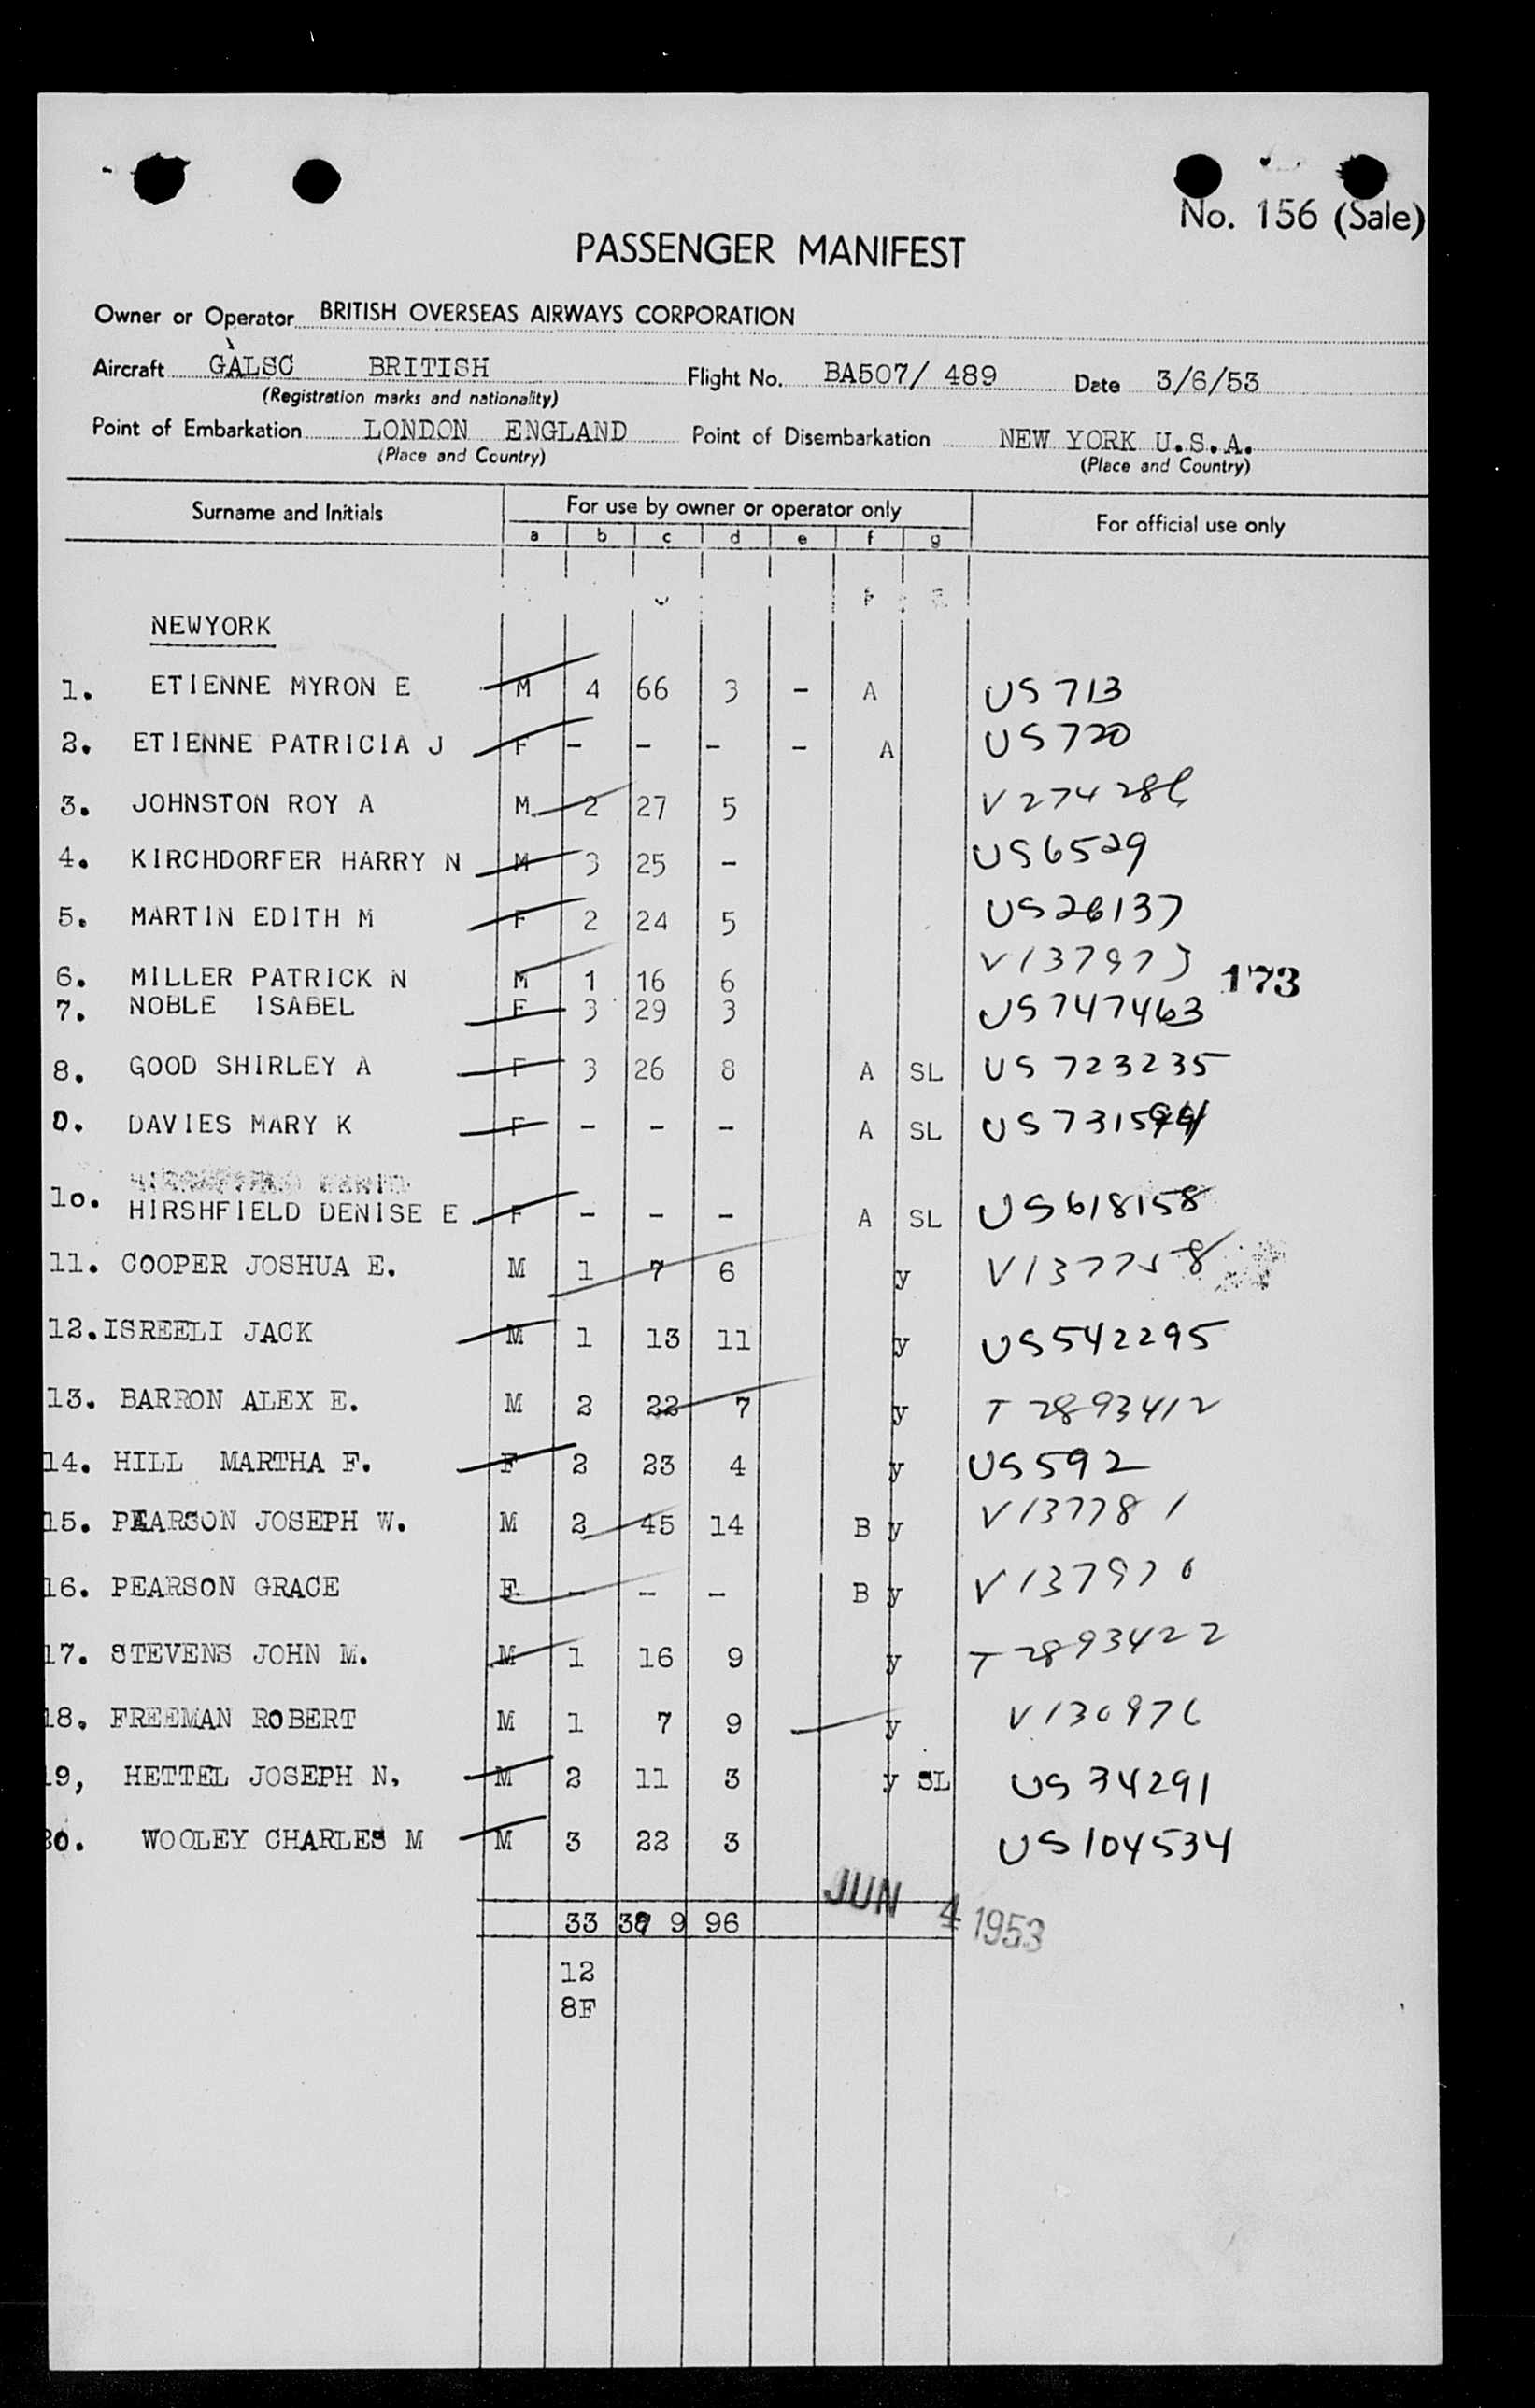 No. 156 (Sale)
PASSENGER MANIFEST
Owner or Operator BRITISH OVERSEAS AIRWAYS CORPORATION
Aircraft GALSC BRITISH Flight No. BA507/ 489 Date 3/6/53
(Registration marks and nationality)
Point of Embarkation LONDON ENGLAND Point of Disembarkation NEW YORK U.S.A.
(Place and Country) (Place and Country)
Surname and Initials For use by owner or operator only For official use only
a b c d e f g
NEWYORK
1. ETIENNE MYRON E M 4 66 3 - A US 713
2. ETIENNE PATRICIA J F - - - - A US 720
3. JOHNSTON ROY A M 2 27 5
4. KIRCHDORFER HARRY N M 3 25 - US6529
5. MARTIN EDITH M F 2 24 5 US26137
6. MILLER PATRICK N M 1 16 6 V137973 173
7. NOBLE ISABEL F 3 29 3 US747463
8. GOOD SHIRLEY A F 3 26 8 A SL US 723235
0. DAVIES MARY K F - - - A SL
10. HIRSHFIELD DENISE E F - - - A SL US618158
11. COOPER JOSHUA E. M 1 7 6 y V137758
12. ISREELI JACK M 1 13 11 y US542295
13. BARRON ALEX E. M 2 22 7 y T 2893412
14. HILL MARTHA F. F 2 23 4 y US592
15. PEARSON JOSEPH W. M 2 45 14 B y V137781
16. PEARSON GRACE F - - - B y V137970
17. STEVENS JOHN M. M 1 16 9 y T 2893422
18. FREEMAN ROBERT M 1 7 9 y V130976
19, HETTEL JOSEPH N, M 2 11 3 y SL US 34291
20. WOOLEY CHARLES M M 3 22 3 US104534
JUN 4 1953
33 9 96
12
8F